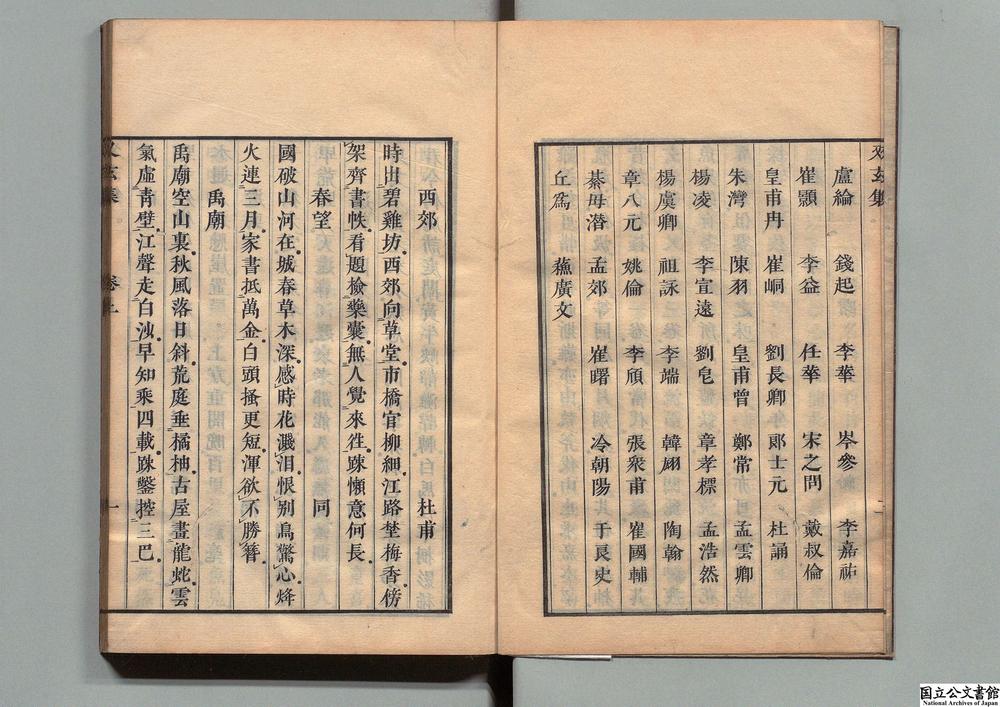 又玄集
盧綸 錢起 李華 岑參 李嘉祐
崔顥 李益 任華 宋之問 戴叔倫
皇甫冉 崔峒 劉長卿 郞士元 杜誦
朱灣 陳羽 皇甫曾 鄭常 孟雲卿
楊凌 李宣遠 劉皂 章孝標 孟浩然
楊虞卿 祖詠 李端 韓翃 陶翰
章八元 姚倫 李頎 張衆甫 崔國輔
綦毋潛 孟郊 崔曙 冷朝陽 于良史
丘爲 蘓廣文
西郊 杜甫
時出碧雞坊西郊向草堂市橋官柳細江路埜梅香傍
架齊書帙看題檢藥囊無人覺來徃踈懶意何長
春望 同
國破山河在城春草木深感時花濺泪恨别鳥驚心烽
火連三月家書抵萬金白頭搔更短渾欲不勝簪
禹廟
禹廟空山裏秋風落日斜荒庭垂橘柚古屋畫龍虵雲
氣虛靑壁江聲走白沙早知乘四載踈鑿控三巴
又玄集 卷上 一
国立公文書館
National Archives of Japan